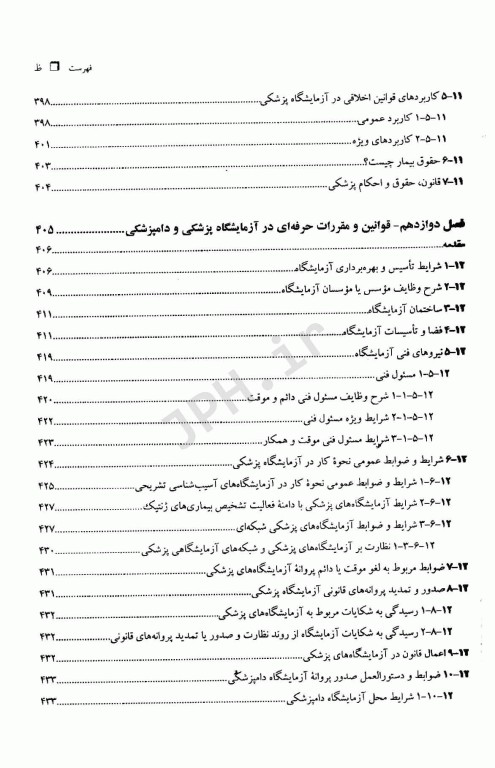 فهرست ❒ ظ
۱۱-۵ کاربردهای قوانین اخلاقی در آزمایشگاه پزشکی ۳۹۸
۱۱-۵-۱ کاربرد عمومی ۳۹۸
۱۱-۵-۲ کاربردهای ویژه ۴۰۱
۱۱-۶ حقوق بیمار چیست؟ ۴۰۳
۱۱-۷ قانون، حقوق و احکام پزشکی ۴۰۴
فصل دوازدهم- قوانین و مقررات حرفه‌ای در آزمایشگاه پزشکی و دامپزشکی ۴۰۵
مقدمه ۴۰۶
۱۲-۱ شرایط تأسیس و بهره‌برداری آزمایشگاه ۴۰۶
۱۲-۲ شرح وظایف مؤسس یا مؤسسان آزمایشگاه ۴۰۹
۱۲-۳ ساختمان آزمایشگاه ۴۱۱
۱۲-۴ فضا و تأسیسات آزمایشگاه ۴۱۱
۱۲-۵ نیروهای فنی آزمایشگاه ۴۱۹
۱۲-۵-۱ مسئول فنی ۴۱۹
۱۲-۵-۱-۱ شرح وظایف مسئول فنی دائم و موقت ۴۲۰
۱۲-۵-۱-۲ شرایط ویژه مسئول فنی ۴۲۲
۱۲-۵-۱-۳ شرایط مسئول فنی موقت و همکار ۴۲۳
۱۲-۶ شرایط و ضوابط عمومی نحوهٔ کار در آزمایشگاه پزشکی ۴۲۴
۱۲-۶-۱ شرایط و ضوابط عمومی نحوهٔ کار در آزمایشگاه‌های آسیب‌شناسی تشریحی ۴۲۵
۱۲-۶-۲ شرایط آزمایشگاه‌های پزشکی با دامنهٔ فعالیت تشخیص بیماری‌های ژنتیک ۴۲۷
۱۲-۶-۳ شرایط و ضوابط آزمایشگاه‌های پزشکی شبکه‌ای ۴۲۷
۱۲-۶-۳-۱ نظارت بر آزمایشگاه‌های پزشکی و شبکه‌های آزمایشگاهی پزشکی ۴۳۰
۱۲-۷ ضوابط مربوط به لغو موقت یا دائم پروانهٔ آزمایشگاه‌های پزشکی ۴۳۱
۱۲-۸ صدور و تمدید پروانه‌های قانونی آزمایشگاه پزشکی ۴۳۱
۱۲-۸-۱ رسیدگی به شکایات مربوط به آزمایشگاه‌های پزشکی ۴۳۲
۱۲-۸-۲ رسیدگی به شکایات آزمایشگاه از روند نظارت و صدور یا تمدید پروانه‌های قانونی ۴۳۲
۱۲-۹ اعمال قانون در آزمایشگاه‌های پزشکی ۴۳۲
۱۲-۱۰ ضوابط و دستورالعمل صدور پروانهٔ آزمایشگاه دامپزشکی ۴۳۳
۱۲-۱۰-۱ شرایط محل آزمایشگاه دامپزشکی ۴۳۳
JPH.ir